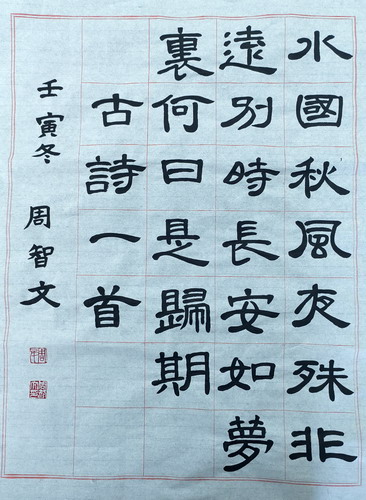 水國秋風夜殊非
遠別時長安如夢
裏何日是歸期
古詩一首
壬寅冬 周智文